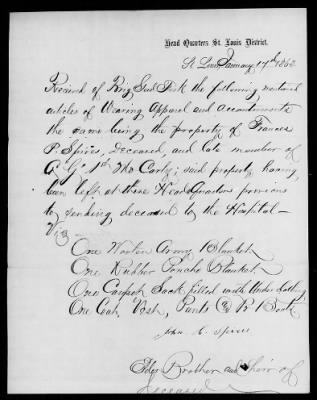 Head Quarters St. Louis District.
St Louis, January 17th 186
Received of Brig Genl Fisk the following
articles of Wearing Apparel and accoutrements
the same being the property of Francis
P. Spires, deceased, and late member of
Co "G" 1st Mo Cavly; said property having
been left at these Head Quarters previous
to sending deceased to the Hospital —
Viz —
One Woolen Army Blanket
One Rubber Poncho Blanket
One Carpet Sack filled with Under Clothing
One Coat, Vest, Pants & Pr Boots
John C. Spires
Brother and Heir of
Deceased